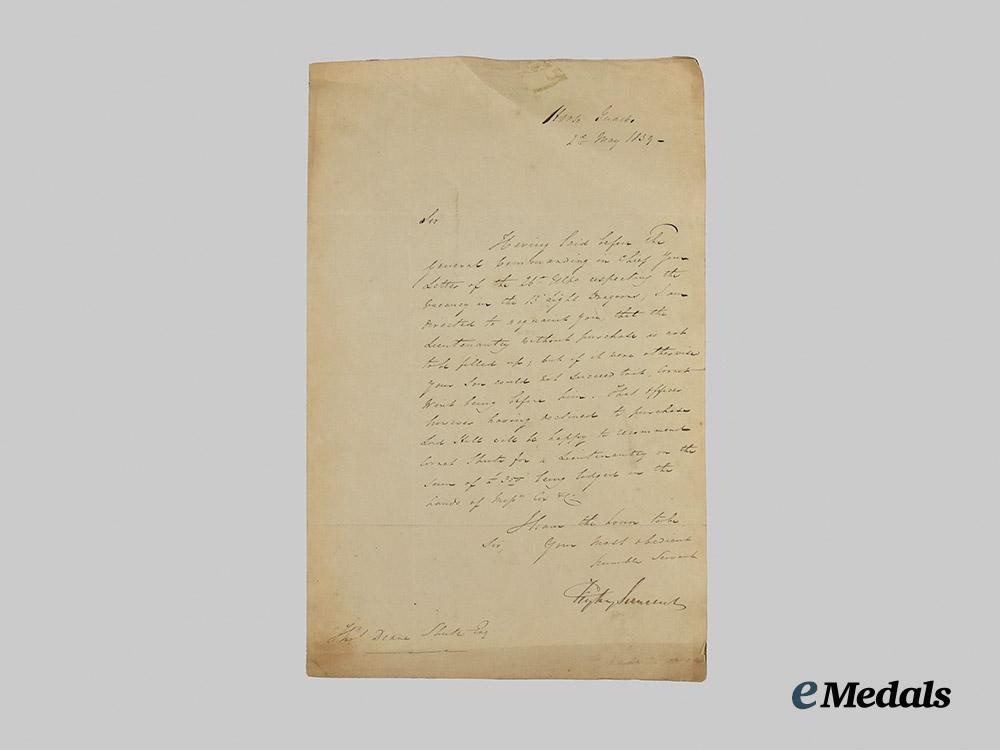 Horse Guards
2nd May 1839 -
Sir
Having laid before The
General Commanding in Chief Your
Letter of the 26th Ulto respecting the
vacancy in the 13 Light Dragoons, I am
directed to acquaint you that the
Lieutenantcy without purchase is not
to be filled up; but if it were otherwise
your Son could not succeed to it, Cornet
being before him. That officer
however having declined to purchase
Lord Hill will be happy to recommend
Cornet Shute for a Lieutenantcy on the
Sum of £ 350 being lodged in the
hands of Messrs Cox & Co
I have the honor to be
Sir, Your most obedient
humble Servant
Thos Deane Shute Esq
eMedals